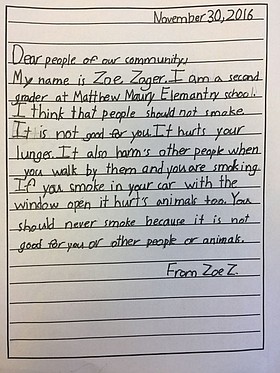 November 30, 2016
Dear people of our community,
My name is Zoe Zager. I am a second
grader at Matthew Maury Elemantry school.
I think that people should not smoke.
It is not good for you. It hurts your
lunges. It also harm's other people when
you walk by them and you are smoking
If you smoke in your car with the
window open it hurt's animals too. You
should never smoke because it is not
good for you or other people or animals.
From Zoe Z.